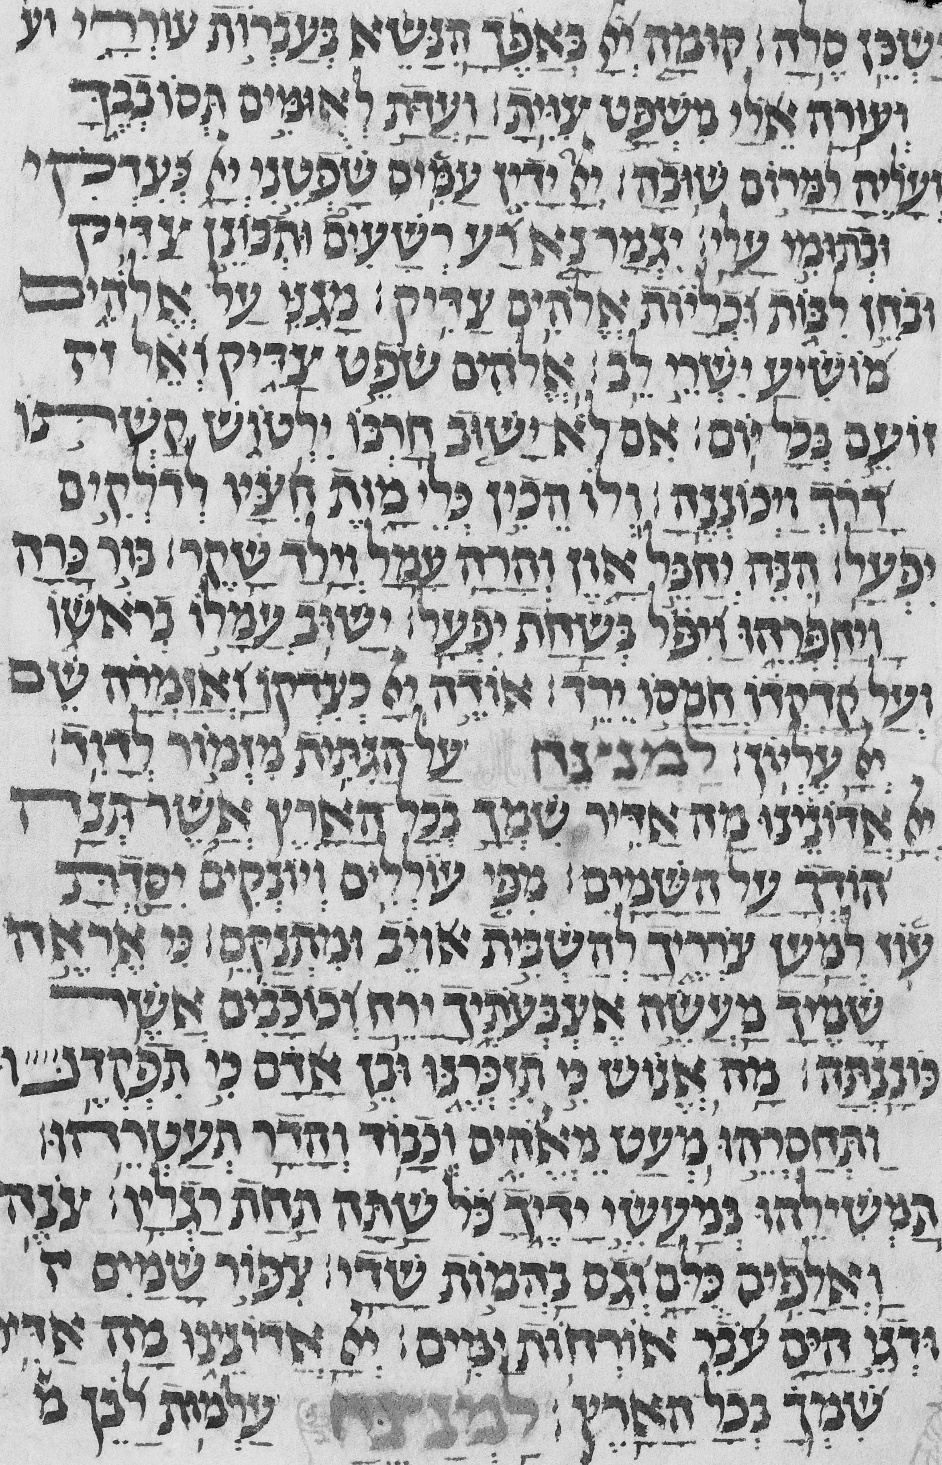 ישכן סלה׃ קומה יי באפך הנשא בעברות עוררי וע
ועורה אלי משפט צוית׃ ועדת לאומים תסובבך
ועליה למרום שובה׃ יי ידין עמים שפטני יי כצדקי
וכתומי עלי׃ יגמר נא רע רשעים ותכונן צדיק
ובחן לבות וכליות אלהים צדיק׃ מגני על אלהים
מושיע ישרי לב׃ אלהים שפט צדיק ואל
זועם בכל יום׃ אם לא ישוב חרבו ילטוש קשתו
דרך ויכוננה׃ ולו הכין כלי מות חציו לדלקים
יפעל׃ הנה יחבל און והרה עמל וילד שקר׃ בור כרה
ויחפרהו ויפל בשחת יפעל׃ ישוב עמלו בראשו
ועל קדקדו חמסו ירד׃ אודה יי כצדקו ואזמרה שם
יי עליון׃ למנצח על הגתית מזמור לדוד׃
יי אדונינו מה אדיר שמך בכל הארץ אשר תנה
הודך על השמים׃ מפי עוללים ויונקים יסדת
עוז למען צורריך להשבית אויב ומתנקם׃ כי אראה
שמיך מעשה אצבעתיך ירח וכוכבים אשר
כוננתה׃ מה אנוש כי תזכרנו ובן אדם כי תפקדנו
ותחסרהו מעט מאלהים וכבוד והדר תעטרהו׃
תמשילהו במעשי ידיך כל שתה תחת רגליו׃ צנה
ואלפים כלם וגם בהמות שדי׃ צפור שמים
ודגי הים עבר אורחות ימים׃ יי אדונינו מה אדי
שמך בכל הארץ׃ למנצח עלמות לבן מ